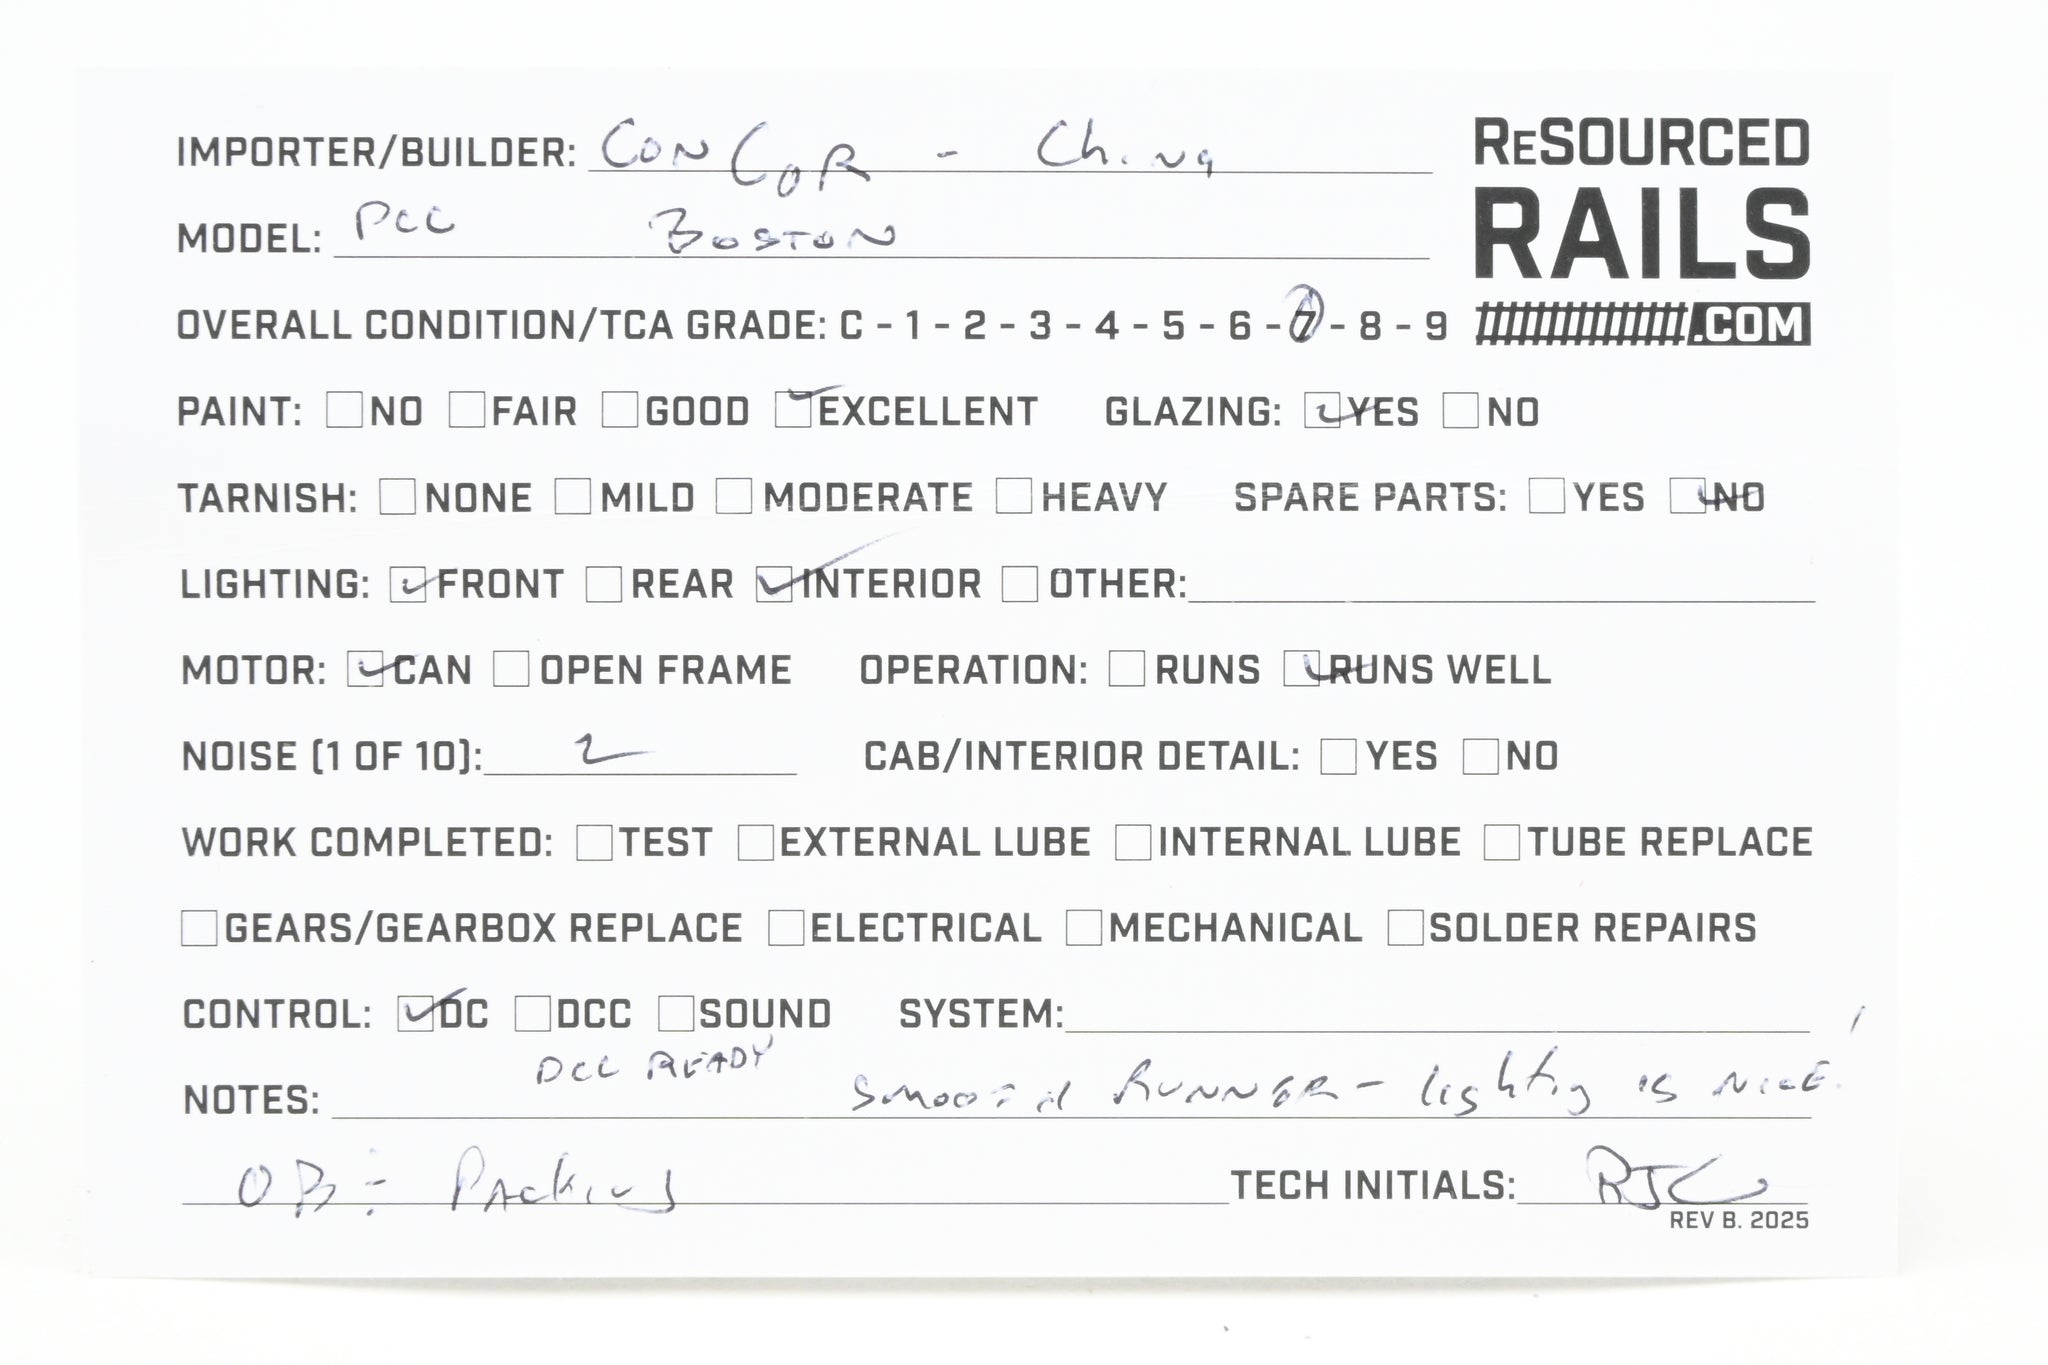 IMPORTER/BUILDER: CONCOR - China
ReSOURCED
RAILS
.COM
MODEL: PCC BOSTON
OVERALL CONDITION/TCA GRADE: C - 1 - 2 - 3 - 4 - 5 - 6 - 7 - 8 - 9
PAINT: NO FAIR GOOD EXCELLENT GLAZING: YES NO
TARNISH: NONE MILD MODERATE HEAVY SPARE PARTS: YES NO
LIGHTING: FRONT REAR INTERIOR OTHER:
MOTOR: CAN OPEN FRAME OPERATION: RUNS RUNS WELL
NOISE (1 OF 10): 2 CAB/INTERIOR DETAIL: YES NO
WORK COMPLETED: TEST EXTERNAL LUBE INTERNAL LUBE TUBE REPLACE
GEARS/GEARBOX REPLACE ELECTRICAL MECHANICAL SOLDER REPAIRS
CONTROL: DC DCC SOUND SYSTEM:
NOTES: DCC READY SMOOTH RUNNER - lighting is NICE!
OB + Packing TECH INITIALS: RJC
REV B. 2025